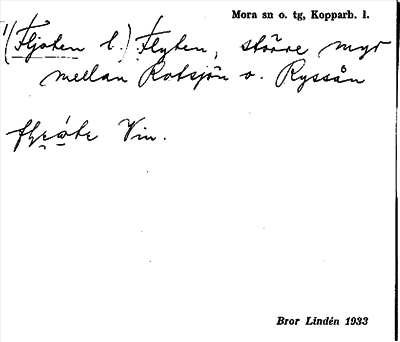 Mora sn o. tg, Kopparb. l.
1/(Fljoten l.) Flyten, större myr
mellan Rotsjön o. Ryssån
Vin.
Bror Lindén 1933